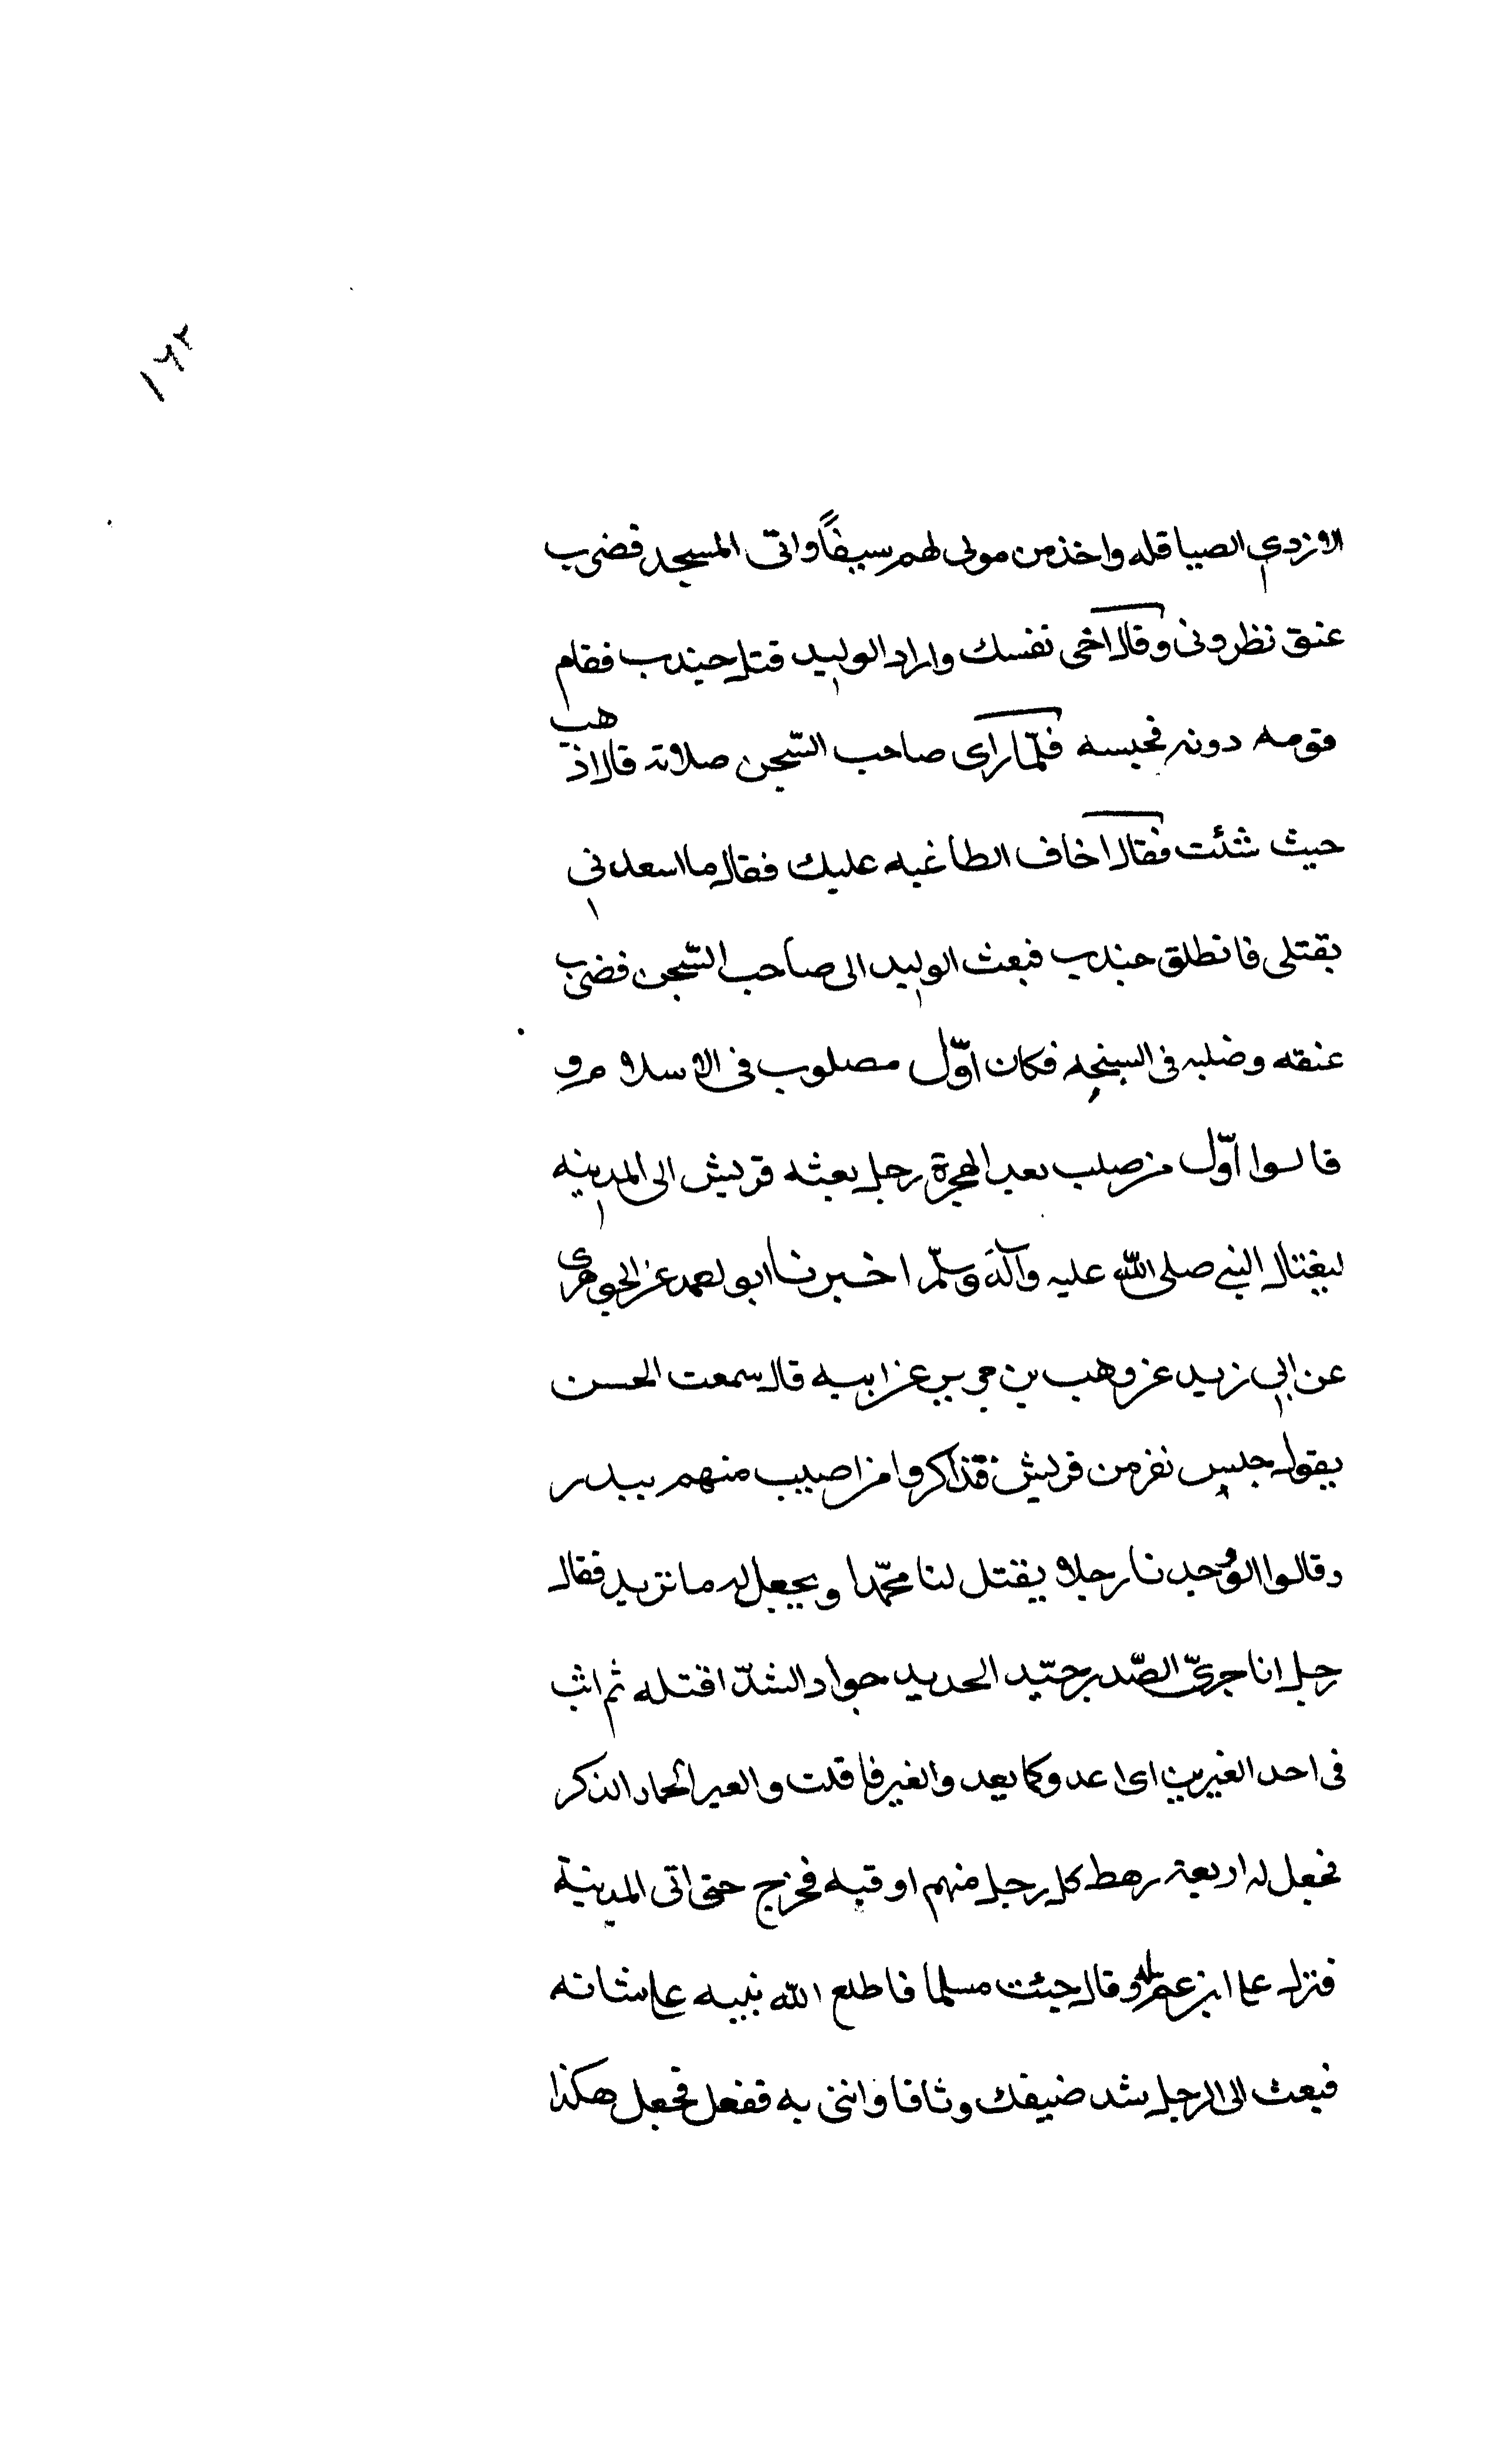 ١٦٢
الازدي الصياقله واخذ من مولى لهم سيفاً واتى المسجد فضرب
عنق نظروني وقال احي نفسك واراد الوليد قتل جندب فقام
قومه دونه فحبسه فلمّا راى صاحب السّجن صلاته قال اذهب
حيث شئت فقال اخاف الطاغيه عليك فقال ما اسعدني
بقتلى فانطلق جندب فبعث الوليد الى صاحب السّجن فضرب
عنقه وصلبه فى السبخه فكان اوّل مصلوب فى الاسلام و
قالوا اوّل من صلب بعد الهجرة رجل بعثه قريش الى المدينه
ليغتال النبي صلى الله عليه وآله وسلّم اخبرنا ابو احمد عن الجوهرى
عن ابي زيد عن وهب بن جرير عن ابيه قال سمعت الحسن
يقول جلس نفر من قريش فتذاكروا من اصيب منهم ببدر
وقالوا لو وجدنا رجلا يقتل لنا محمّدا ويجعل له ما نريد فقال
رجل انا جرئ الصّدر جيّد الحديد جواد الشدّ اقتله ثم اثب
فى احد الغيرين اى اعدو كما يعد والغير فاقلت والعير الحمار الذكر
فجعل له اربعة رهط كل رجل منهم اوقيه فخرج حتى اتى المدينة
فنزل على ابن عم له وقال جئت مسلما فاطلع الله نبيه على شانه
فبعث الى الرجل شد ضيفك وثاقا وائتنى به ففعل فجعل هكذا